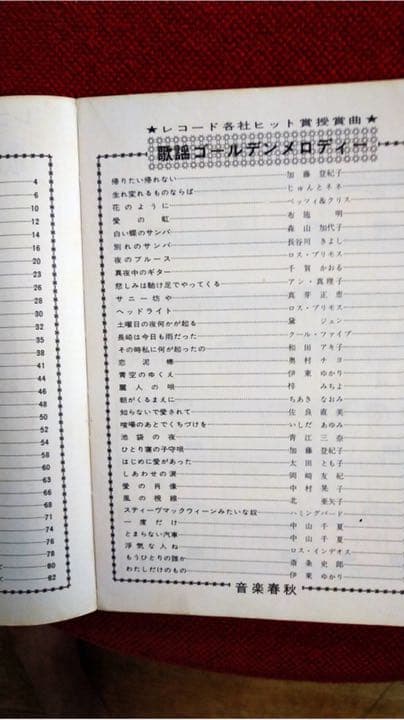 4
6
7
8
10
12
14
16
18
20
22
24
26
28
30
32
34
35
38
★レコード各社ヒット賞授賞曲★
歌謡ゴールデンメロディー
帰りたい帰れない 加藤 登紀子
生れ変れるものならば じゅんとネネ
花のように ベッツィ&クリス
愛の虹 布施 明
白い蝶のサンバ 森山 加代子
別れのサンバ 長谷川 きよし
夜のブルース ロス・プリモス
真夜中のギター 千賀 かおる
悲しみは駈け足でやってくる アン・真理子
サニー坊や 正恵
ヘッドライト ロス・プリモス
土曜日の夜何かが起る 黛 ジュン
長崎は今日も雨だった クール・ファイブ
その時私に何が起ったの 和田 アキ子
恋泥棒 奥村 チヨ
青空のゆくえ 伊東 ゆかり
麗人の唄 梓 みちよ
朝がくるまえに ちあき なおみ
知らないで愛されて 佐良 直美
喧噪のあとでくちづけを いしだ あゆみ
池袋の夜 青江 三奈
ひとり寝の子守唄 加藤 登紀子
はじめに愛があった 太田 とも子
しあわせの涙 岡崎 友紀
愛の肖像 中村 晃子
風の視線 北 亜矢子
スティーヴマックウィーンみたいな奴 ハミングバード
一度だけ 中山 千夏
とまらない汽車 中山 千夏
浮気な人ね ロス・インデオス
もうひとりの誰か 斎条 史郎
わたしだけのもの 伊東 ゆかり
音楽春秋